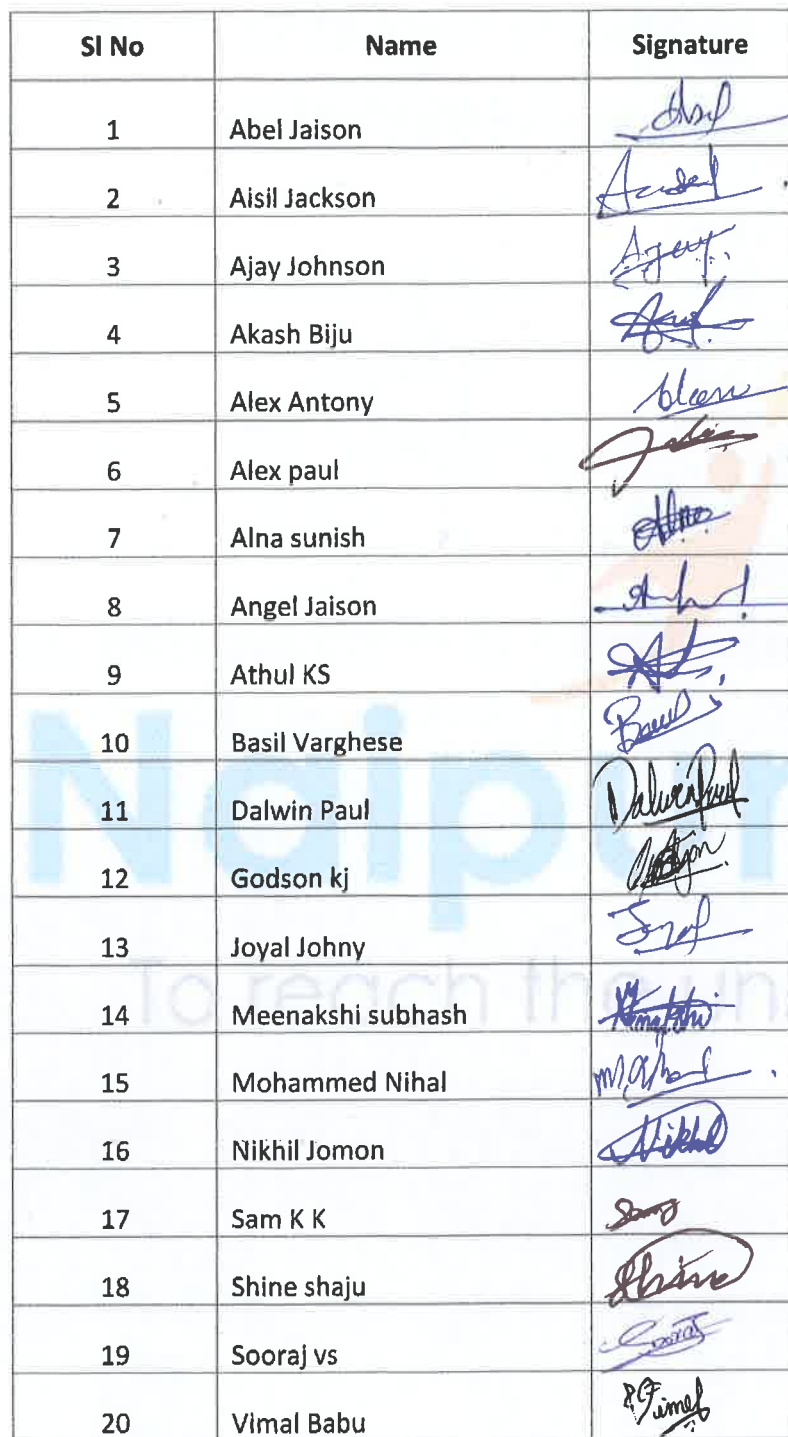 Sl No Name Signature
1 Abel Jaison
2 Aisil Jackson
3 Ajay Johnson Ajay
4 Akash Biju
5 Alex Antony
6 Alex paul
7 Alna sunish Alna
8 Angel Jaison
9 Athul KS
10 Basil Varghese Basil
11 Dalwin Paul Dalwin Paul
12 Godson kj
13 Joyal Johny
14 Meenakshi subhash
15 Mohammed Nihal
16 Nikhil Jomon Nikhil
17 Sam K K
18 Shine shaju Shine
19 Sooraj vs Sooraj
20 Vimal Babu
Naipun
To reach the un